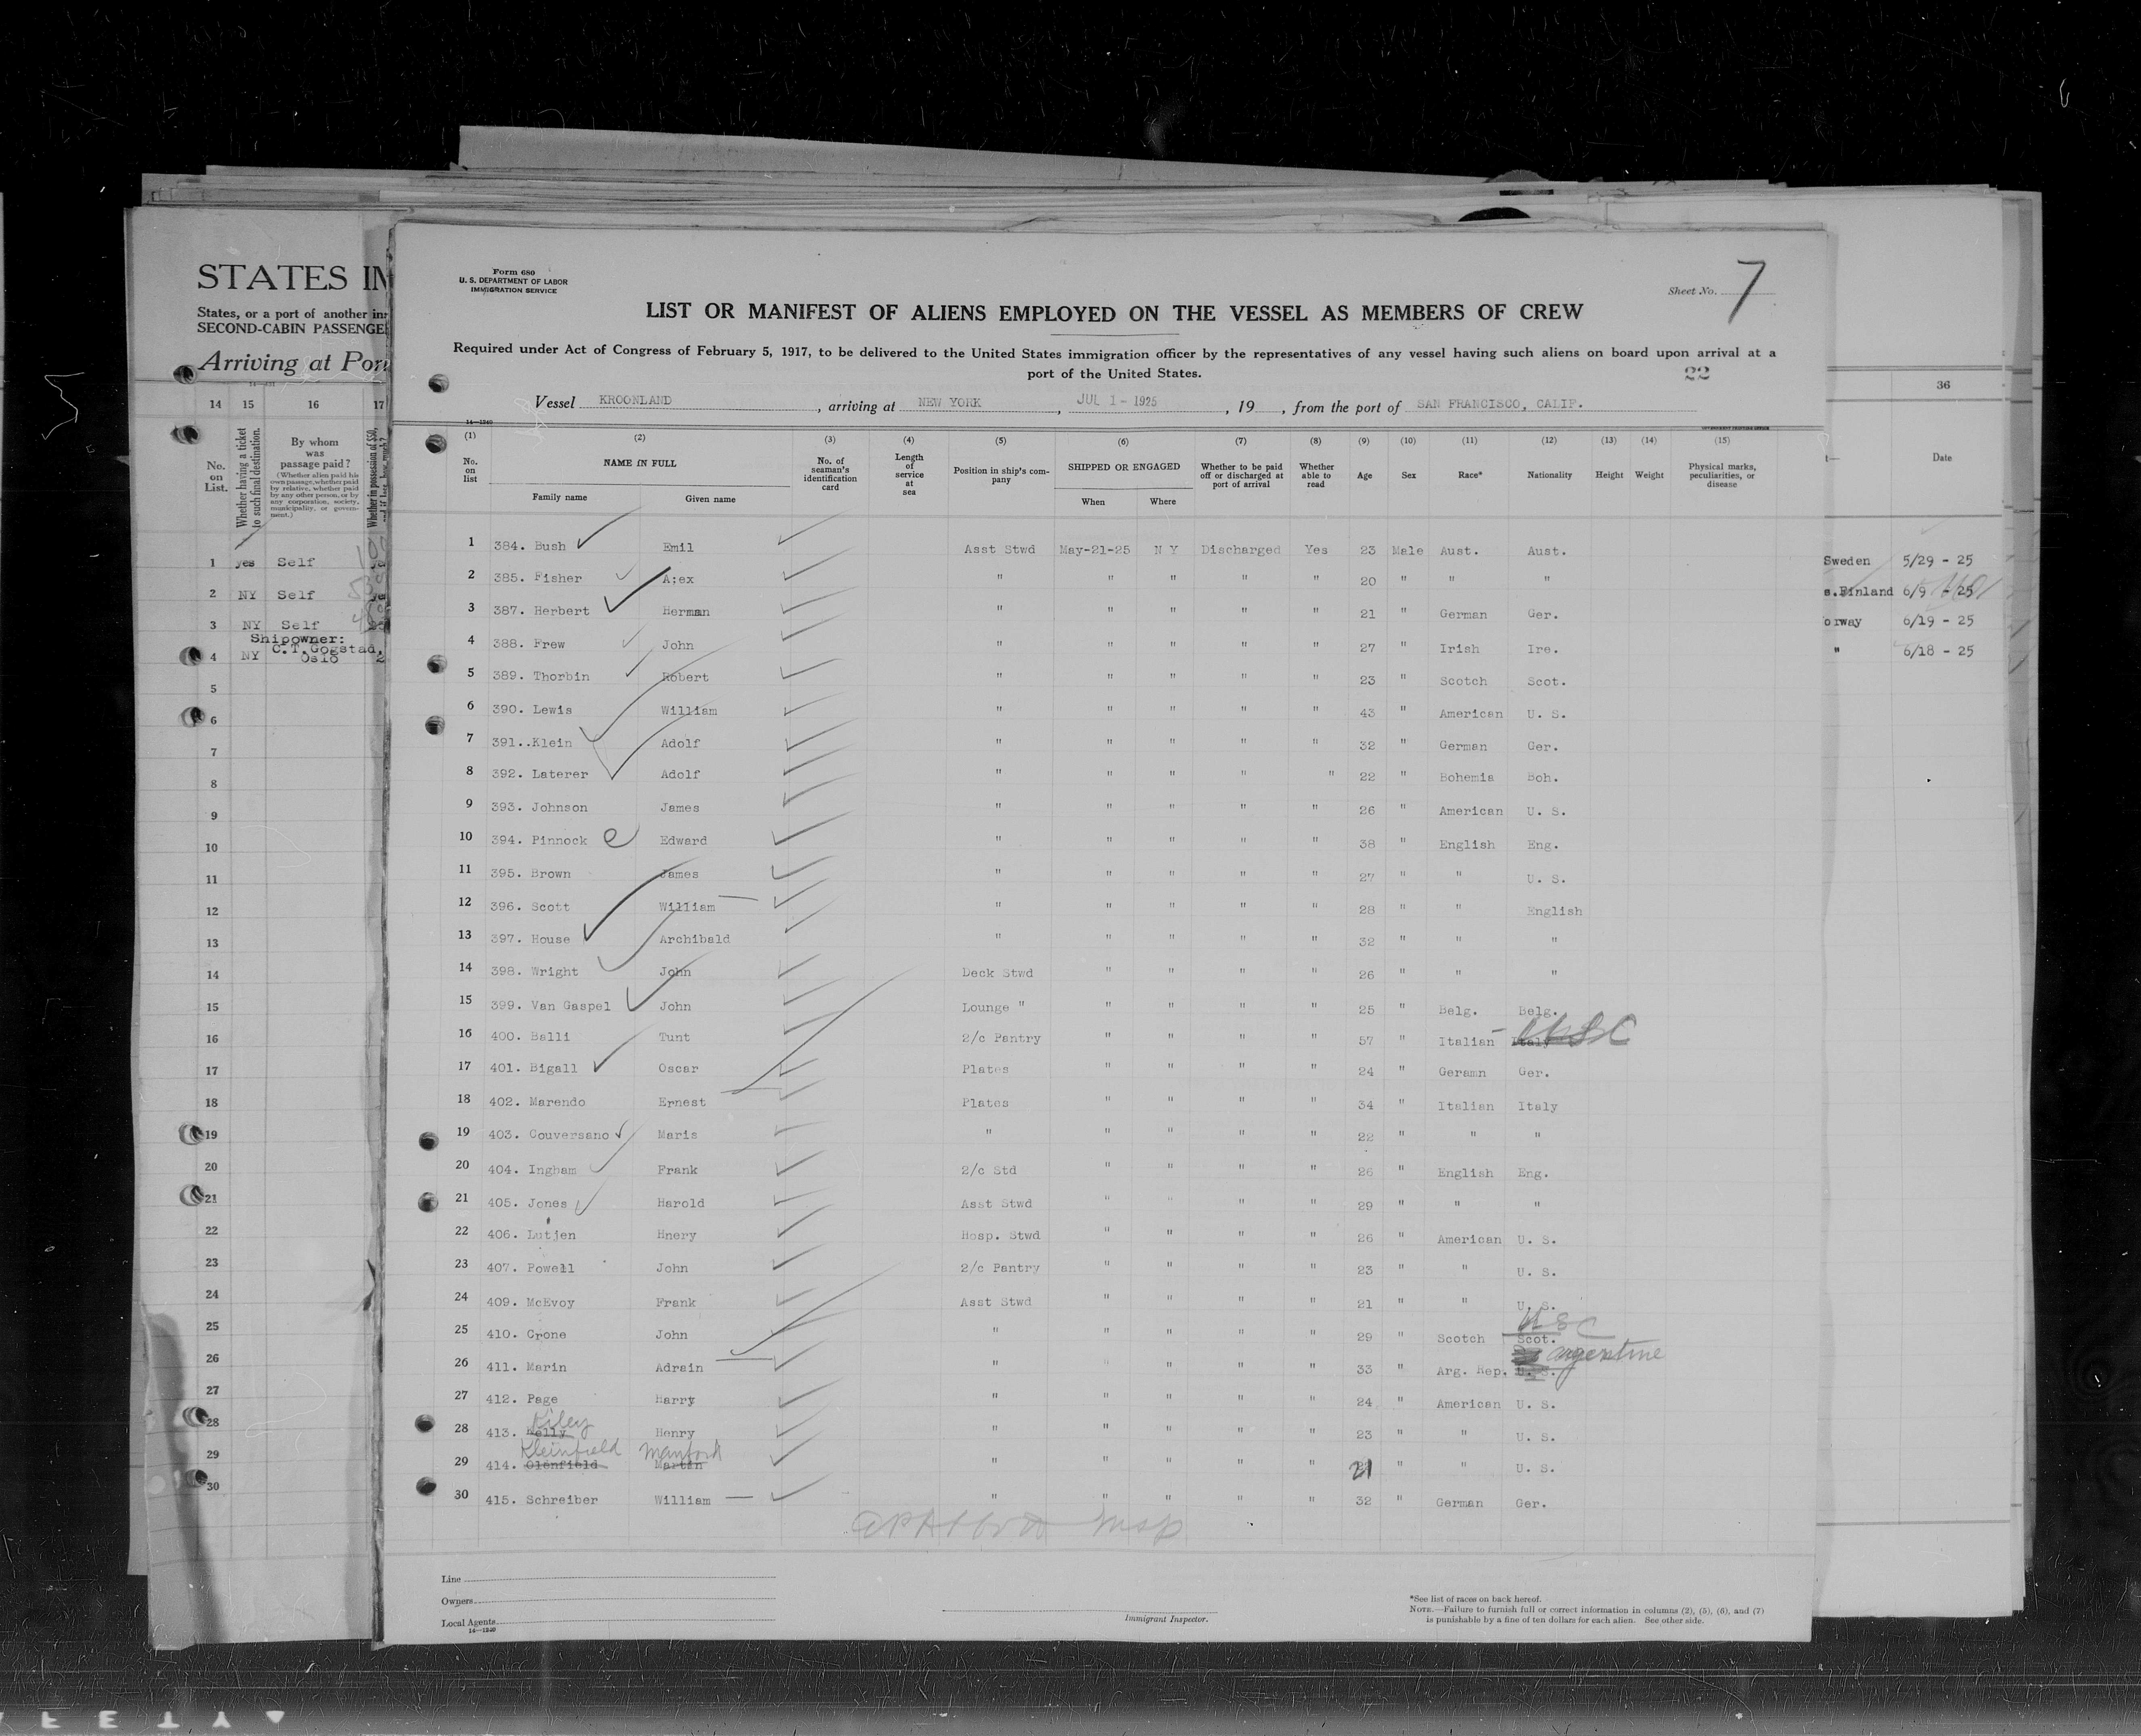 STATES IN
States, or a port of another ins
SECOND-CABIN PASSENGE
Arriving at Por
14 15 16 17
No. on List.
Whether having a ticket to such final destination.
By whom was passage paid?
(Whether alien paid his own passage, whether paid by relative, whether paid by any other person, or by any corporation, society, municipality, or government.)
1 yes Self
2 NY Self
3 NY Self
Shipowner:
4 NY C.T.Gogstad,
Oslo
5
6
7
8
9
10
11
12
13
14
15
16
17
18
19
20
21
22
23
24
25
26
27
28
29
30
Form 680
U. S. DEPARTMENT OF LABOR
IMMIGRATION SERVICE
Sheet No. 7
LIST OR MANIFEST OF ALIENS EMPLOYED ON THE VESSEL AS MEMBERS OF CREW
Required under Act of Congress of February 5, 1917, to be delivered to the United States immigration officer by the representatives of any vessel having such aliens on board upon arrival at a
port of the United States.
22
Vessel KROONLAND, arriving at NEW YORK, JUL 1 - 1925, 19 , from the port of SAN FRANCISCO, CALIF.
14—1240
(1) (2) (3) (4) (5) (6) (7) (8) (9) (10) (11) (12) (13) (14) (15)
No. on list NAME IN FULL No. of seaman's identification card Length of service at sea Position in ship's company SHIPPED OR ENGAGED Whether to be paid off or discharged at port of arrival Whether able to read Age Sex Race* Nationality Height Weight Physical marks, peculiarities, or disease
Family name Given name When Where
1 384. Bush Emil Asst Stwd May-21-25 N Y Discharged Yes 23 Male Aust. Aust.
2 385. Fisher A:ex " " " " " 20 " " "
3 387. Herbert Herman " " " " " 21 " German Ger.
4 388. Frew John " " " " " 27 " Irish Ire.
5 389. Thorbin Robert " " " " " 23 " Scotch Scot.
6 390. Lewis William " " " " " 43 " American U. S.
7 391..Klein Adolf " " " " " 32 " German Ger.
8 392. Laterer Adolf " " " " " 22 " Bohemia Boh.
9 393. Johnson James " " " " " 26 " American U. S.
10 394. Pinnock Edward " " " " " 38 " English Eng.
11 395. Brown James " " " " " 27 " " U. S.
12 396. Scott William " " " " " 28 " " English
13 397. House Archibald " " " " " 32 " " "
14 398. Wright John Deck Stwd " " " " 26 " " "
15 399. Van Gaspel John Lounge " " " " " 25 " Belg. Belg.
16 400. Balli Tunt 2/c Pantry " " " " 57 " Italian Italy USC
17 401. Bigall Oscar Plates " " " " 24 " Geramn Ger.
18 402. Marendo Ernest Plates " " " " 34 " Italian Italy
19 403. Couversano Maris " " " " " 22 " " "
20 404. Ingham Frank 2/c Std " " " " 26 " English Eng.
21 405. Jones Harold Asst Stwd " " " " 29 " " "
22 406. Lutjen Hnery Hosp. Stwd " " " " 26 " American U. S.
23 407. Powell John 2/c Pantry " " " " 23 " " U. S.
24 409. McEvoy Frank Asst Stwd " " " " 21 " " U. S.
USC
25 410. Crone John " " " " " 29 " Scotch Scot.
argentine
26 411. Marin Adrain " " " " " 33 " Arg. Rep. U. S.
27 412. Page Harry " " " " " 24 " American U. S.
Kiley
28 413. Kelly Henry " " " " " 23 " " U. S.
Kleinfield Manford
29 414. Glenfield Martin " " " " " 21 " " U. S.
30 415. Schreiber William " " " " " 32 " German Ger.
Line
Owners
Local Agents
14—1240
Immigrant Inspector.
*See list of races on back hereof.
NOTE.—Failure to furnish full or correct information in columns (2), (5), (6), and (7)
is punishable by a fine of ten dollars for each alien. See other side.
36
Date
Sweden 5/29 - 25
s.Finland 6/9 - 25
orway 6/19 - 25
" 6/18 - 25